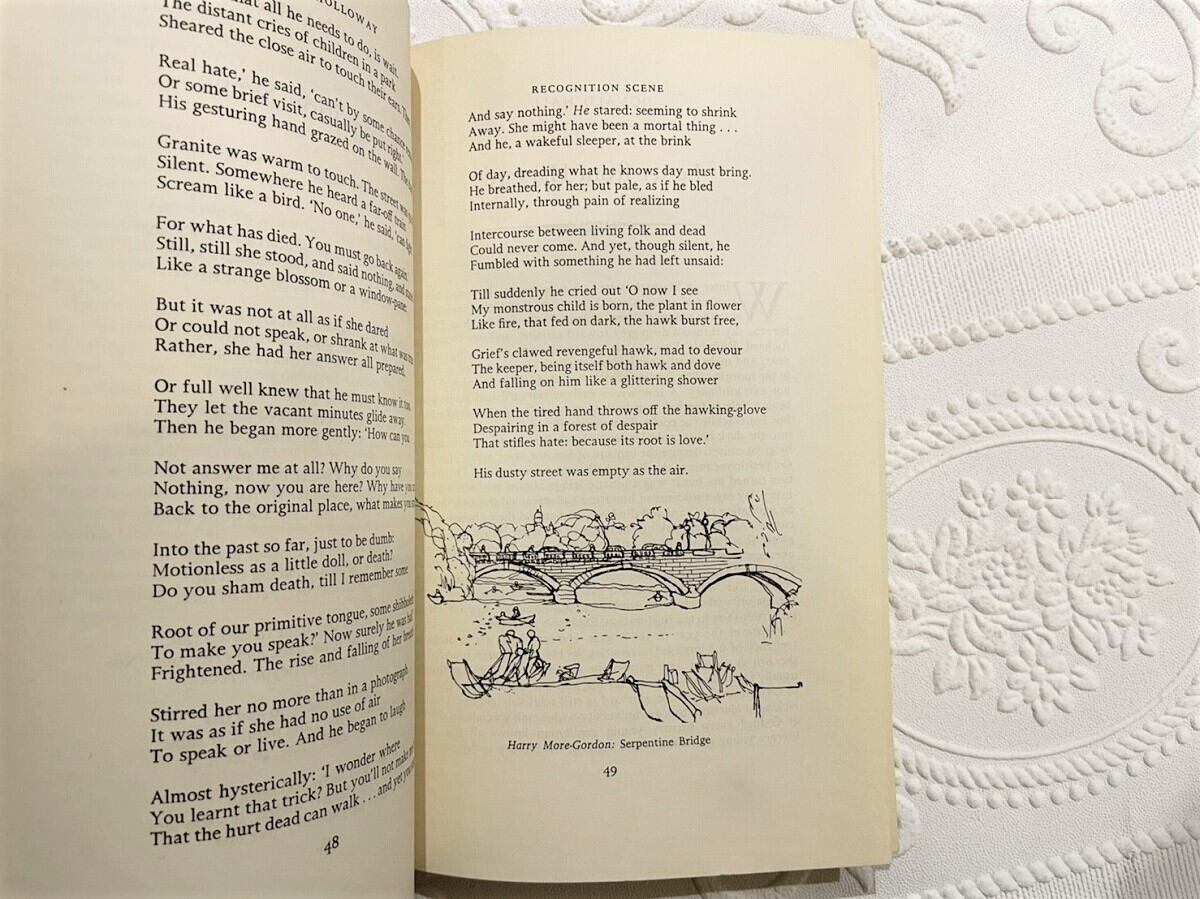 HOLLOWAY
that all he needs to do, is wait.
The distant cries of children in a park
Sheared the close air to touch their ears. Then
Real hate,' he said, 'can't by some chance
Or some brief visit, casually be put right.'
His gesturing hand grazed on the wall. The
Granite was warm to touch. The street was
Silent. Somewhere he heard a far-off train
Scream like a bird. 'No one,' he said, 'can
For what has died. You must go back again.'
Still, still she stood, and said nothing, and
Like a strange blossom or a window-pane:
But it was not at all as if she dared
Or could not speak, or shrank at what was
Rather, she had her answer all prepared,
Or full well knew that he must know it too.
They let the vacant minutes glide away.
Then he began more gently: 'How can you
Not answer me at all? Why do you say
Nothing, now you are here? Why have you
Back to the original place, what makes you
Into the past so far, just to be dumb:
Motionless as a little doll, or death?
Do you sham death, till I remember some
Root of our primitive tongue, some shibboleth
To make you speak?' Now surely he was half
Frightened. The rise and falling of her breath
Stirred her no more than in a photograph.
It was as if she had no use of air
To speak or live. And he began to laugh
Almost hysterically: 'I wonder where
You learnt that trick? But you'll not make me
That the hurt dead can walk . . . and yet you
48
RECOGNITION SCENE
And say nothing.' He stared: seeming to shrink
Away. She might have been a mortal thing . . .
And he, a wakeful sleeper, at the brink
Of day, dreading what he knows day must bring.
He breathed, for her; but pale, as if he bled
Internally, through pain of realizing
Intercourse between living folk and dead
Could never come. And yet, though silent, he
Fumbled with something he had left unsaid:
Till suddenly he cried out 'O now I see
My monstrous child is born, the plant in flower
Like fire, that fed on dark, the hawk burst free,
Grief's clawed revengeful hawk, mad to devour
The keeper, being itself both hawk and dove
And falling on him like a glittering shower
When the tired hand throws off the hawking-glove
Despairing in a forest of despair
That stifles hate: because its root is love.'
His dusty street was empty as the air.
Harry More-Gordon: Serpentine Bridge
49